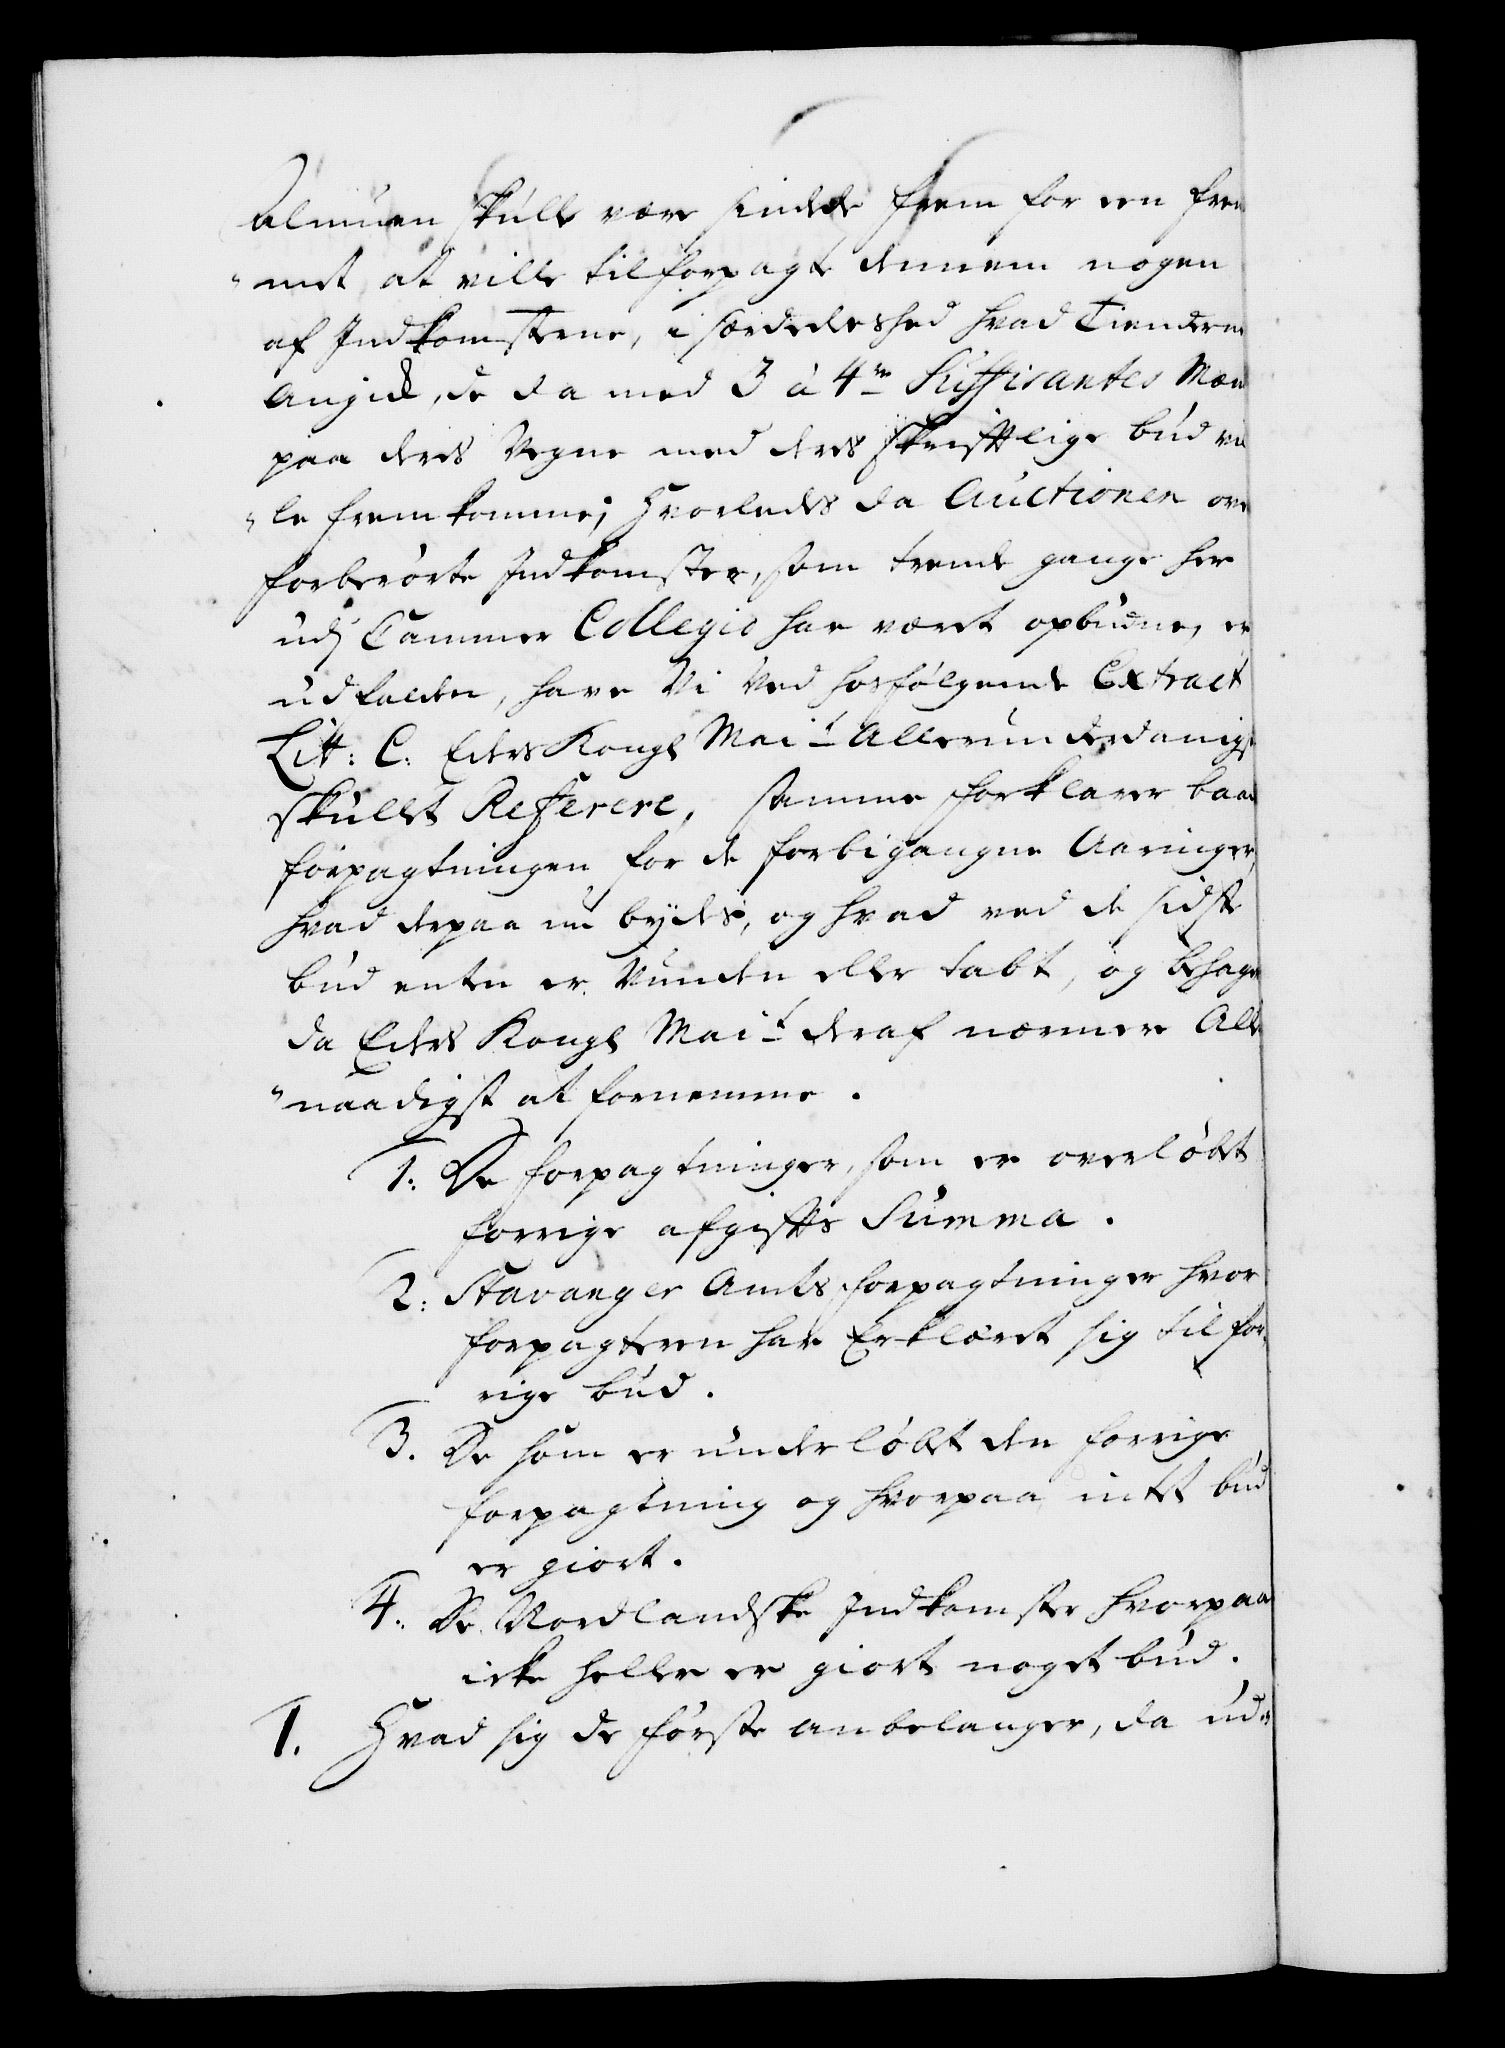 Almuen skulle være sindede frem for een frem
"met at ville tilforpagte dennem nogen
af Indkomsterne, i særdeleshed hvad Tienderne
Angick, de da med 3 à 4re Suffisantes Mæn
paa deres Vegne med deres skrifftlige bud vil
"le fremkomme; Hvorledes da Auctionen over
forberörte Indkomster, som trende gange her
udj Cammer Collegio har været opbudne, er
udfalden, have Vi Ved hosfölgende Extract
Litt: C: Eders Kongl Mait Allerunderdanigst
skullet Referere, samme forklarer baade
forpagtningen for de forbigangne Aaringer,
hvad derpaa nu bydes, og hvad ved de sidste
bud enten er Vunden eller tabt, og behager
da Eders Kongl Mait deraf nærmere Aller
"naadigst at fornemme.
1: De forpagtninger, som er overlöbt
forrige afgiffts Summa.
2: Stavanger Amts forpagtninger hvor
forpagteren har Erklæret sig til for-
rige bud.
3. De som er underlöbet den forrige
forpagtning og hvorpaa intet bud
er giort.
4. De Nordlandske Indkomster hvorpaa
icke heller er giort noget bud.
1. Hvad sig de förste anbelanger, da ud-